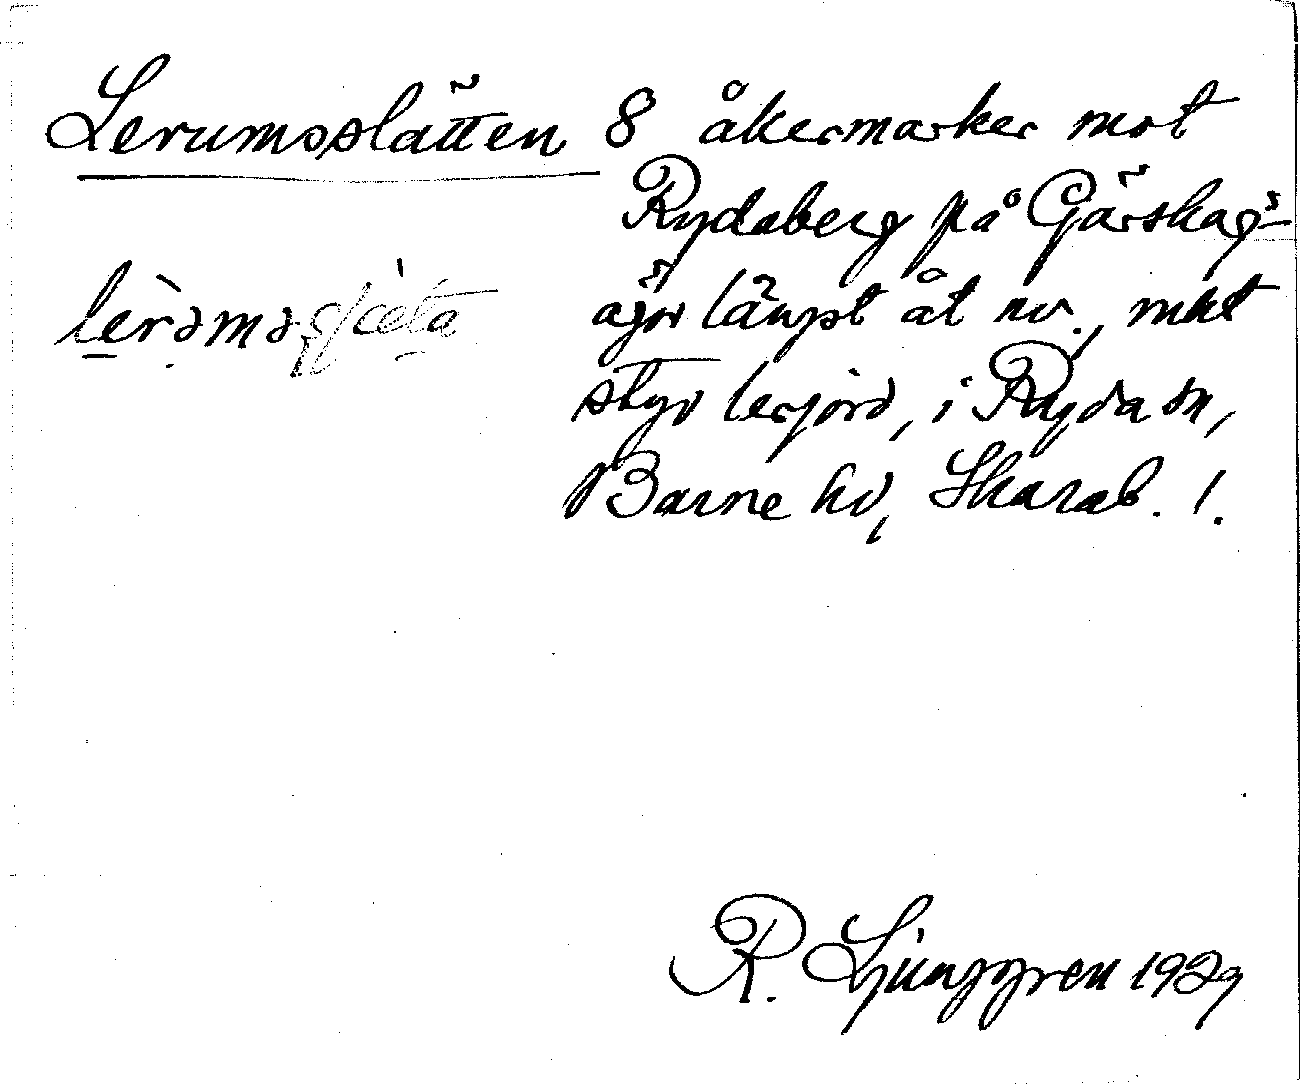 Lerumsslätten 8 åkermarker mot
Rydaberg på Gärskag-
ägor längst åt nv., mkt
styv lerjord, i Ryda sn,
Barne hd, Skarab. !.
R. Ljunggren 1929